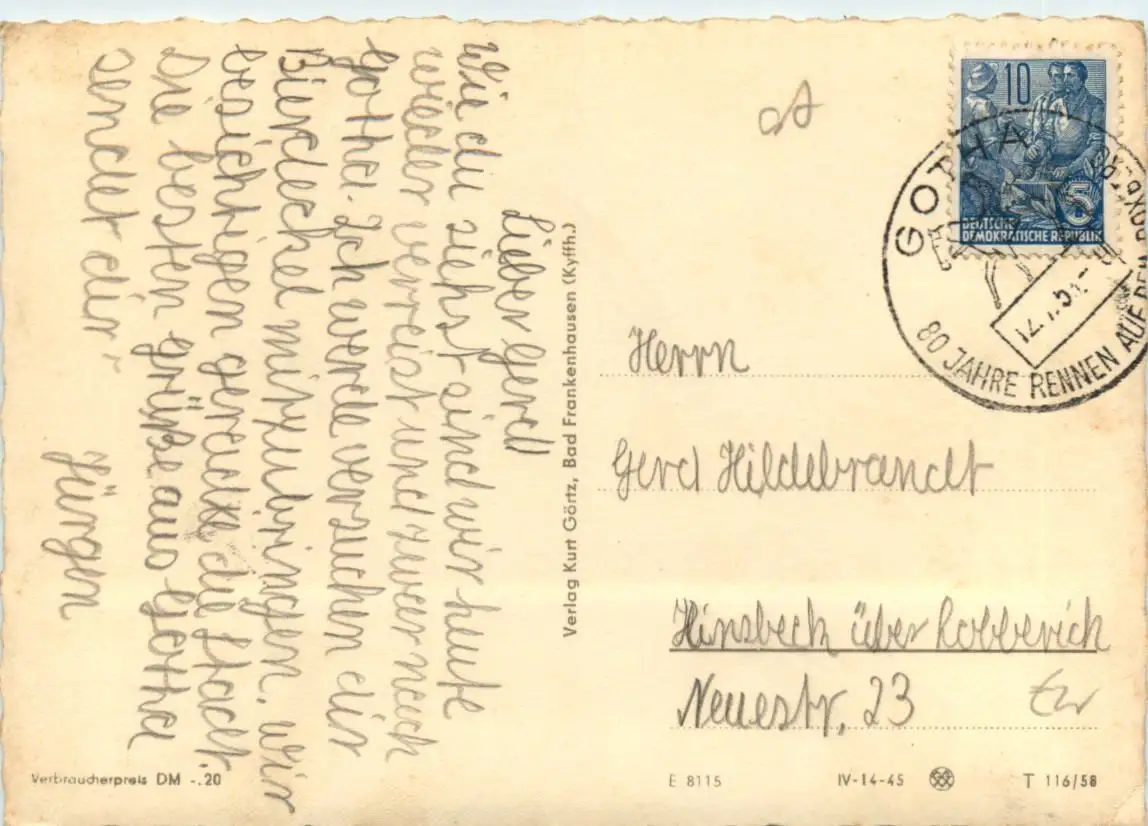 Lieber Gerd
Wie du siehst sind wir heute
wieder verreist und zwar nach
Gotha. Ich werde versuchen dir
Bierdeckel mitzubringen. Wir
besichtigen gerade die Stadt.
Die besten Grüße aus Gotha
sendet dir
Jürgen
Verlag Kurt Görtz, Bad Frankenhausen (Kyffh.)
10
5
DEUTSCHE
DEMOKRATISCHE REPUBLIK
GOTHA
80 JAHRE RENNEN AUF DEM BOXBERG
Herrn
Gerd Hildebrandt
Hinsbeck über Lobberich
Neuestr. 23
Verbraucherpreis DM -.20
E 8115
IV-14-45
T 116/58